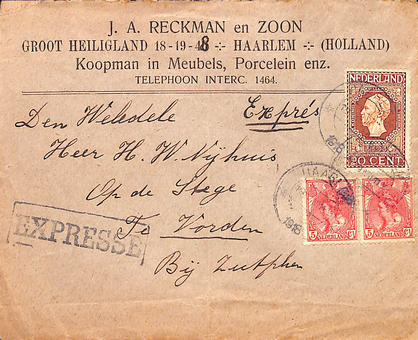 J. A. RECKMAN en ZOON
GROOT HEILIGLAND 18-19-48 -:- HAARLEM -:- (HOLLAND)
Koopman in Meubels, Porcelein enz.
TELEPHOON INTERC. 1464.
Den Weledele Exprés
Heer H. W. Nyhuis
Op de Stege
To Vorden
Bij Zutphen
EXPRESSE
NEDERLAND
20 CENT
HAARL
1918
1918
5 ct
NEDERLAND
5 ct
NEDERLAND